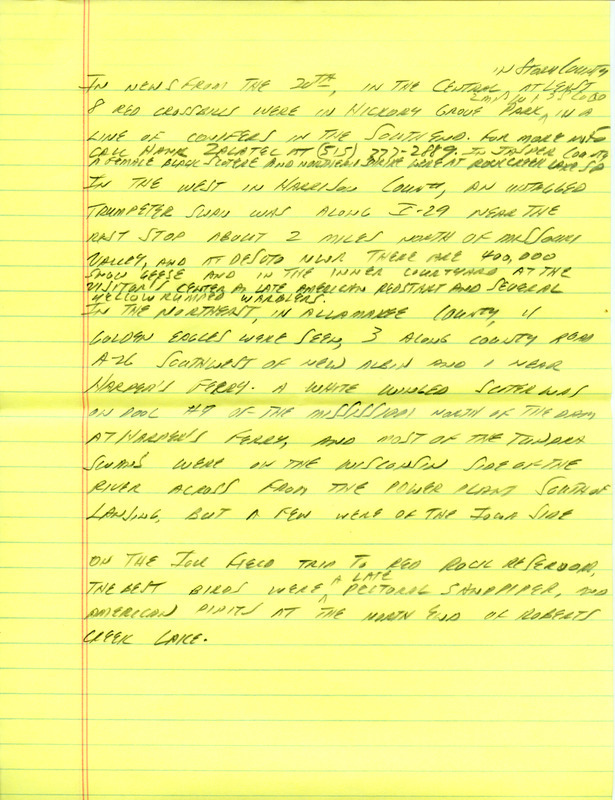 IN STORY COUNTY
IN NEWS FROM THE 20TH, IN THE CENTRAL AT LEAST
8 RED CROSSBILLS WERE IN HICKORY GROVE PARK, IN A
LINE OF CONIFERS IN THE SOUTH END. FOR MORE INFO
CALL HANK ZALATEL AT (515) 377-2889. IN JASPER COUNTY
A FEMALE BLACK SCOTER AND NORTHERN SHRIKE WERE AT ROCK CREEK LAKE SP
IN THE WEST IN HARRISON COUNTY, AN UNTAGGED
TRUMPETER SWAN WAS ALONG I-29 NEAR THE
REST STOP ABOUT 2 MILES NORTH OF MISSOURI
VALLEY, AND AT DESOTO NWR THERE ARE 400,000
SNOW GEESE AND IN THE INNER COURTYARD AT THE
VISITOR'S CENTER A LATE AMERICAN REDSTART AND SEVERAL
YELLOW RUMPED WARBLERS.
IN THE NORTHEAST, IN ALLAMAKEE COUNTY, 4
GOLDEN EAGLES WERE SEEN, 3 ALONG COUNTY ROAD
A-26 SOUTHWEST OF NEW ALBIN AND 1 NEAR
HARPER'S FERRY. A WHITE WINGED SCOTER WAS
ON POOL #9 OF THE MISSISSIPPI NORTH OF THE DAM
AT HARPER'S FERRY, AND MOST OF THE TUNDRA
SWANS WERE ON THE WISCONSIN SIDE OF THE
RIVER ACROSS FROM THE POWER PLANT SOUTH OF
LANSING, BUT A FEW WERE OF THE IOWA SIDE
ON THE IOU FIELD TRIP TO RED ROCK RESERVOIR,
THE BEST BIRDS WERE A LATE PECTORAL SANDPIPER, AND
AMERICAN PIPITS AT THE NORTH END OF ROBERTS
CREEK LAKE.